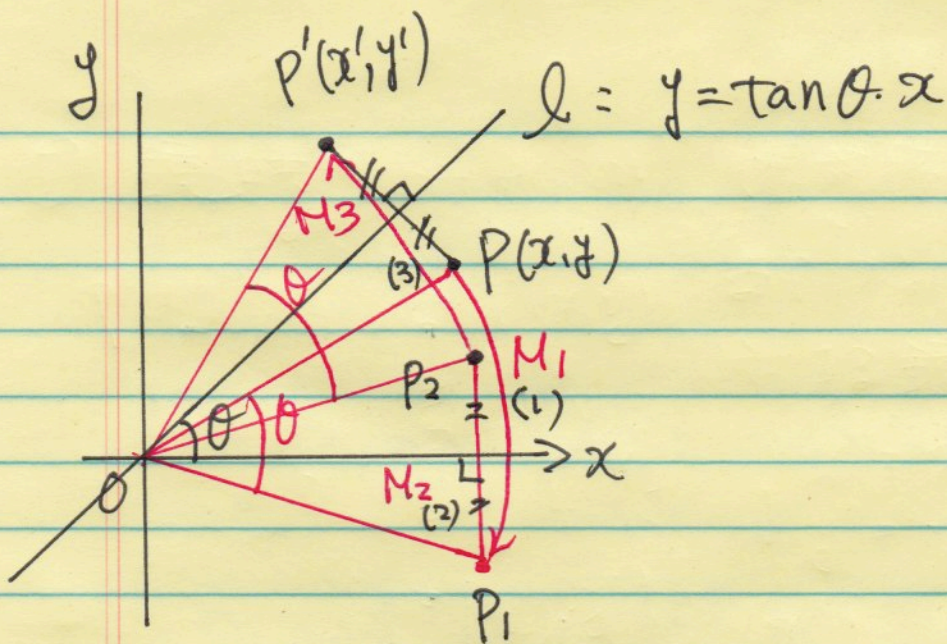 y
P'(x',y')
l = y = tanθ·x
M3
(3)
P(x,y)
θ
M1
(1)
P2
θ
θ
x
O
M2
(2)
P1